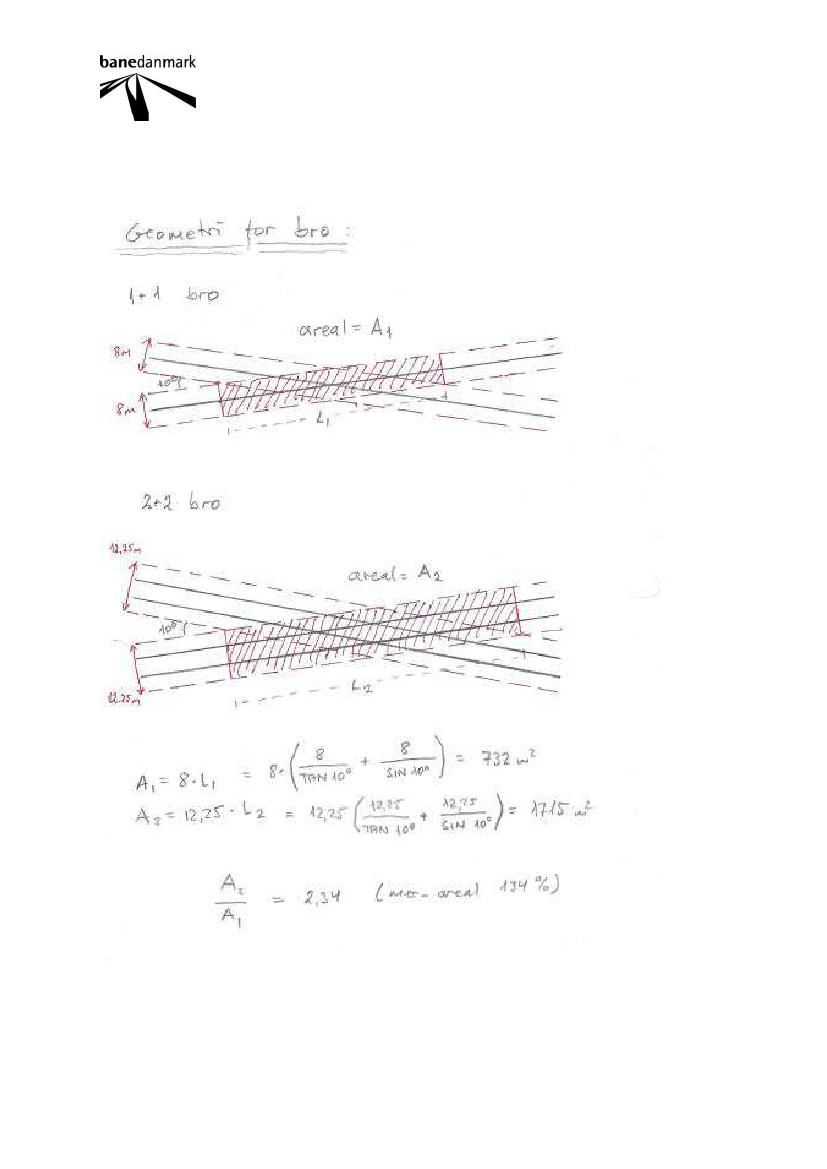 banedanmark
Geometri for bro :
1+1 bro
areal = A1
8m
10°
8m
L1
2+2 bro
12,25m
areal = A2
10°
12.25m
L2
A1 = 8·L1 = 8·(8/TAN 10° + 8/SIN 10°) = 732 m²
A2 = 12,25 · L2 = 12,25 (12,25/TAN 10° + 12,25/SIN 10°) = 1715 m²
A2/A1 = 2,34 (mer-areal 134 %)